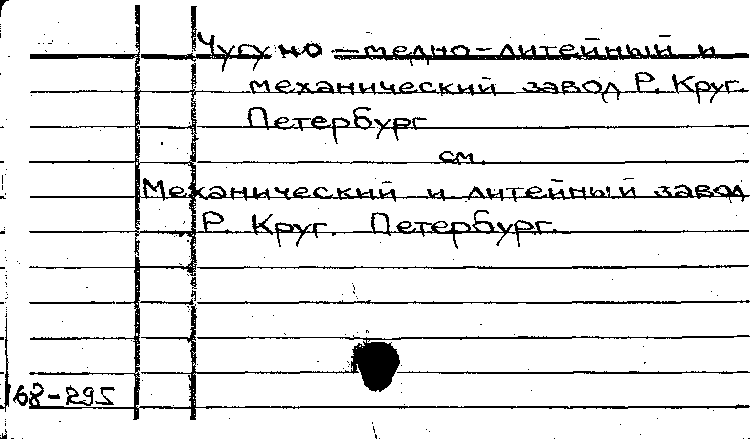 Чугуно-медно-литейный и
механический завод Р. Круг.
Петербург
см.
Механический и литейный завод
Р. Круг. Петербург.
168-295